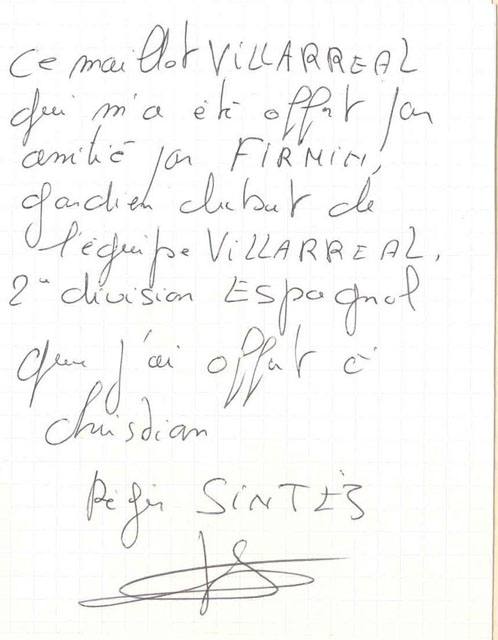 Ce maillot ViLLARREAL
qui m'a été offert par
amitié par FIRMIN,
gardien de but de
l'équipe ViLLARREAL,
2e division Espagnol
que j'ai offert à
Christian
Régis SiNTÈS